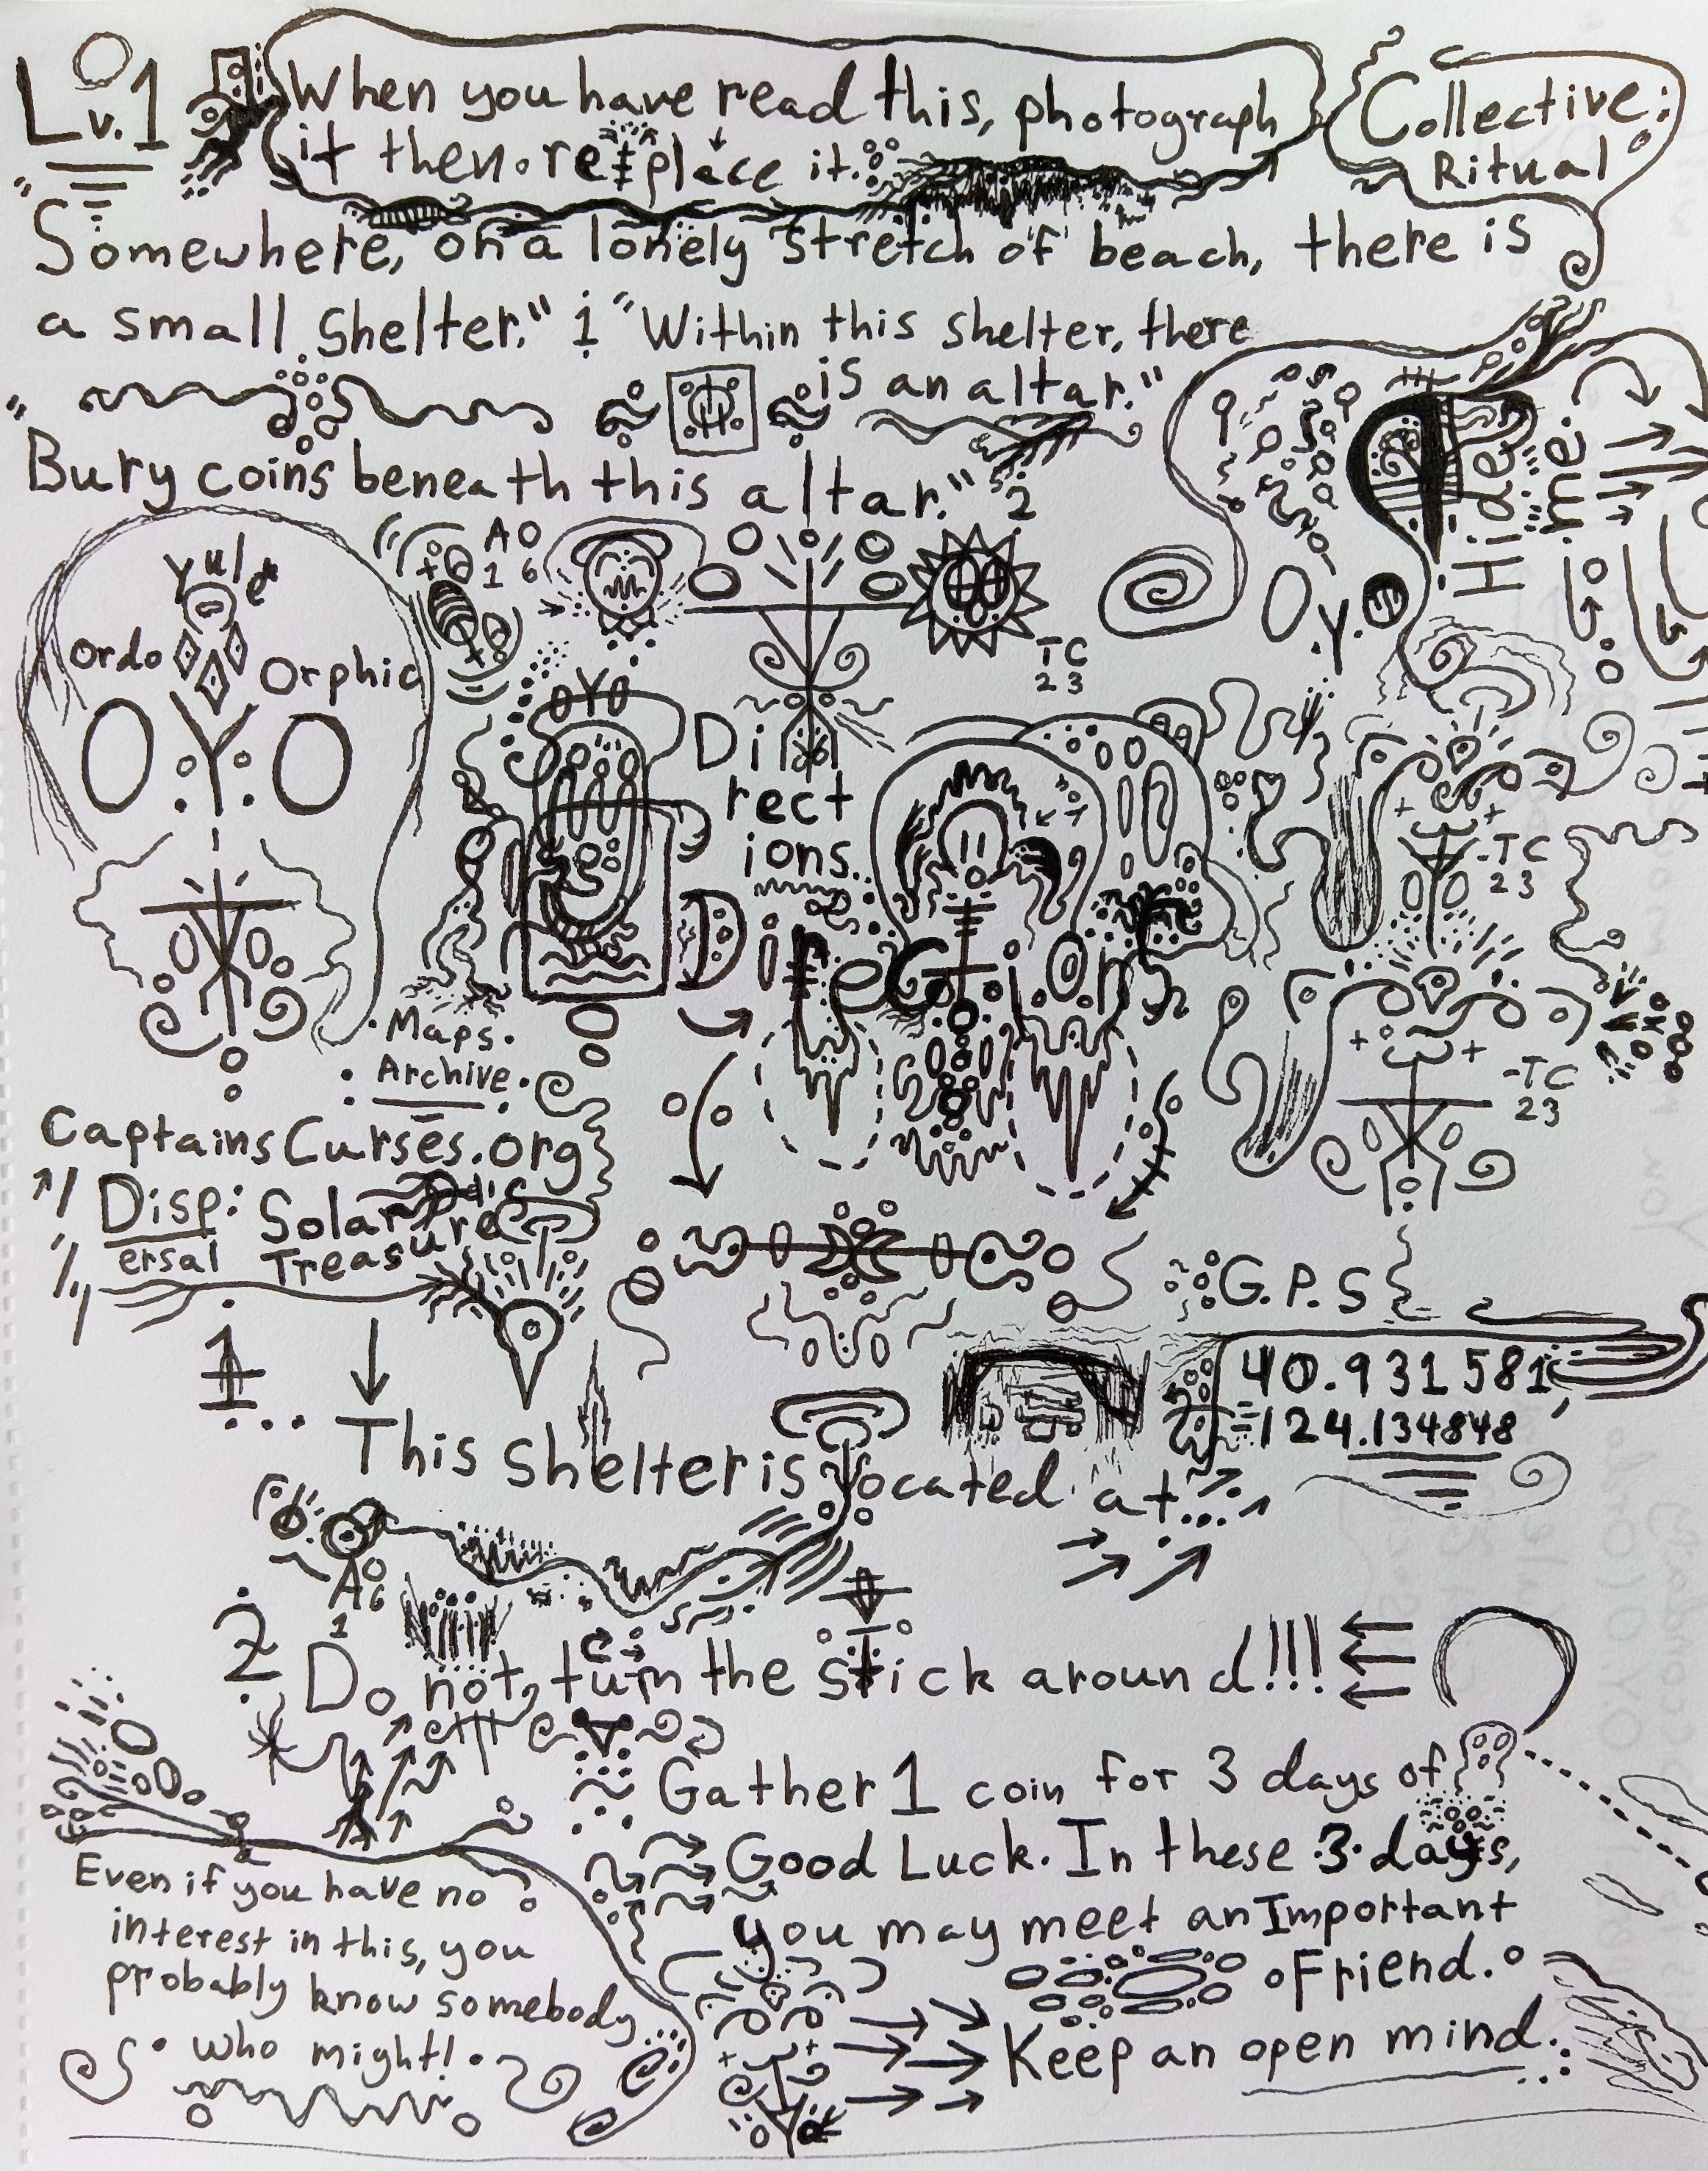 Lv.1
When you have read this, photograph
it then replace it.
Collective
Ritual
"Somewhere, on a lonely stretch of beach, there is
a small shelter." 1 "Within this shelter, there
is an altar."
"Bury coins beneath this altar." 2
Hide
me.
Yule
Ordo Orphic
OYO
A O
1 6
TC
23
O.Y.O
OYO
Di
rect
ions.
Directions
-TC
23
Maps.
Archive.
-TC
23
CaptainsCurses.org
Disp:
ersal
Solar
Treasure
G.P.S
40.931581
-124.134848
1
This shelter is located at...
A6
1
2
Do not turn the stick around!!!
Gather 1 coin for 3 days of
Good Luck. In these 3 days,
you may meet an Important
Friend.
Keep an open mind.
Even if you have no
interest in this, you
probably know somebody
who might!